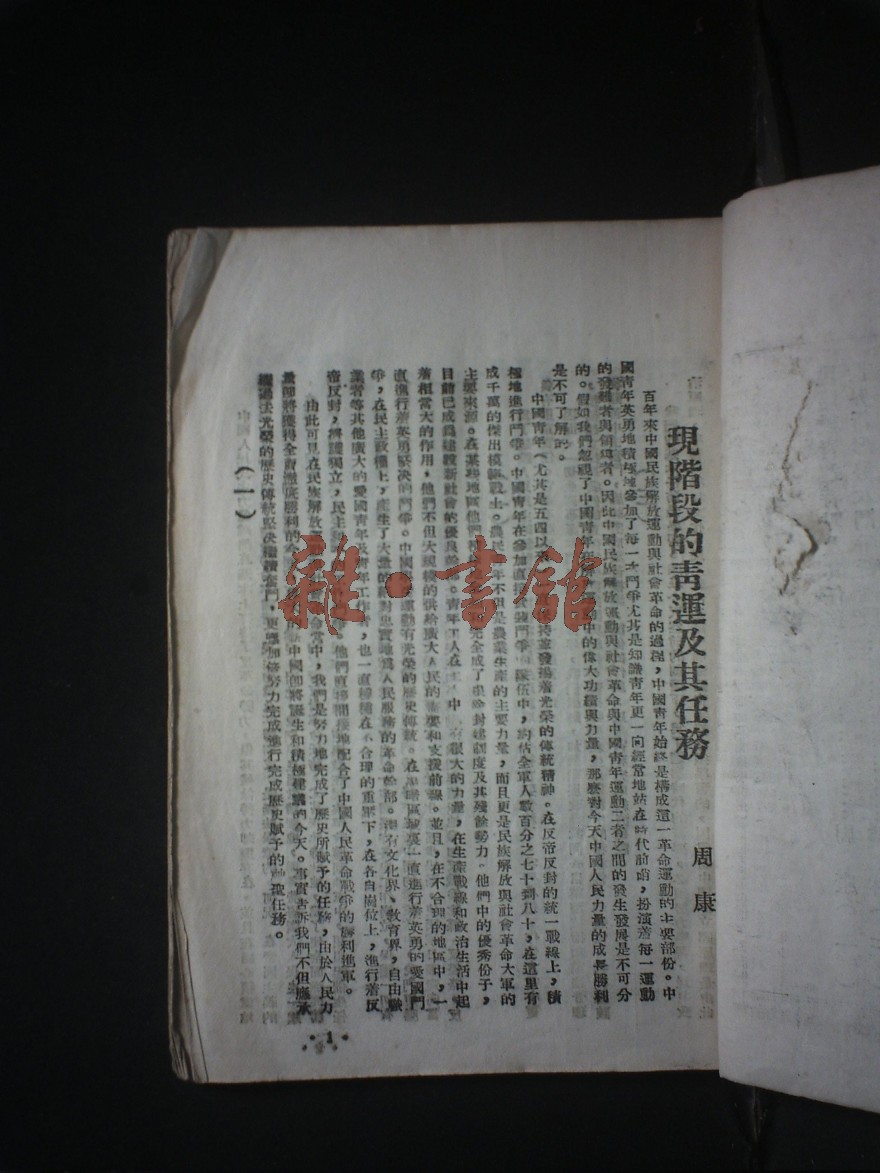 現階段的靑運及其任務
周康
百年來中國民族解放運動與社會革命的過程，中國靑年始終是構成這一革命運動的主要部份。中
國靑年英勇地積極地參加了每一次鬥爭尤其是知識靑年更一向經常地站在時代前哨，扮演着每一運動
的發難者與領導者。因此中國民族解放運動與社會革命與中國靑年運動二者之間的發生發展是不可分
的。假如我們忽視了中國靑年在運動中的偉大功績與力量，那麽對今天中國人民力量的成長勝利
是不可了解的。
中國靑年（尤其是五四以來）發揚着光榮的傳統精神。在反帝反封的統一戰線上，積
極地進行鬥爭。中國靑年在參加直接武裝鬥爭隊伍中，約佔全軍人數百分之七十到八十，在這里有
成千萬的傑出模範戰士。農民靑年不但是農業生產的主要力量，而且更是民族解放與社會革命大軍的
主要來源。在某些地區他們完全成了封建制度及其殘餘勢力。他們中的優秀份子，
目前已成爲建設新社會的優良幹部。靑年工人在中很大的力量，在生產戰線和政治生活中起
着相當大的作用，他們不但大規模的供給廣大人民的需要和支援前線。並且，在不合理的地區中，一
直進行着英勇堅決的鬥爭。中國運動有光榮的歷史傳統。在區域裏一直進行着英勇的愛國鬥
爭，在民主政權上，產生了大量的忠實地爲人民服務的革命幹部。還有文化界、敎育界，自由職
業者等其他廣大的愛國靑年及靑年工作者，也一直積極在不合理的重軍下，在各自崗位上，進行着反
帝反封，獨立，民主他們直接間接地配合了中國人民革命戰爭的勝利進軍。
由此可見在民族解放革命當中，我們是努力地完成了歷史所賦予的任務，由於人民力
量卽將獲得全部澈底勝利的今天中國卽將誕生和積極建設的今天。事實吿訴我們不但應承
繼過去光榮的歷史傳統堅決繼續奮鬥，更應加倍努力完成進行完成歷史賦予的神聖任務。
（一）
1
雜·書館